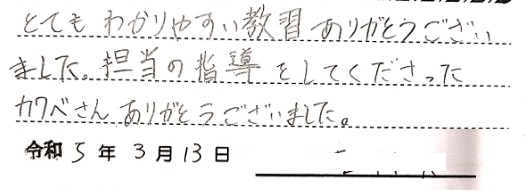 とてもわかりやすい教習ありがとうござい
ました。担当の指導をしてくださった
カワベさんありがとうございました。
令和5年3月13日